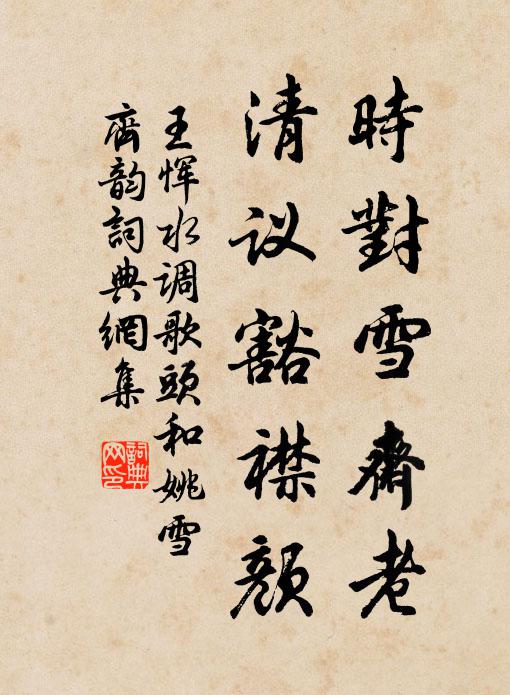 時對雪齋老
清议豁襟顏
王恽水调歌頭和姚雪
齊韵詞典網集
詞典网印